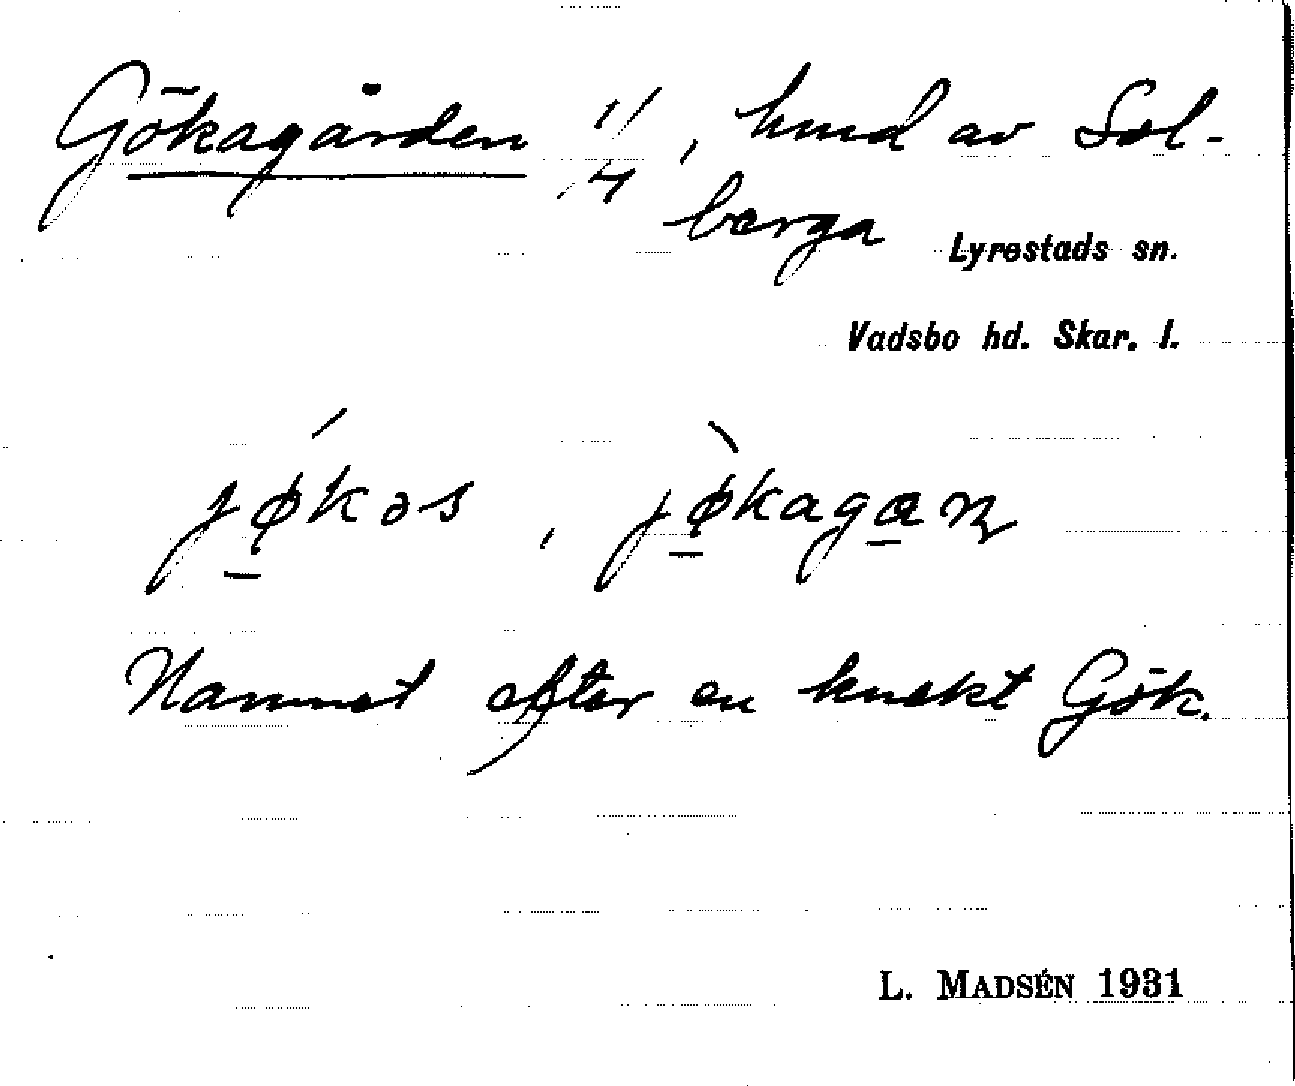 Gökagården 1/4, hmd av Sol-
berga
Lyrestads sn.
Vadsbo hd. Skar. l.
jǿ̱kəs, jø̱̀kaga̱ɳ
Namnet efter en knekt Gök.
L. MADSÉN 1931